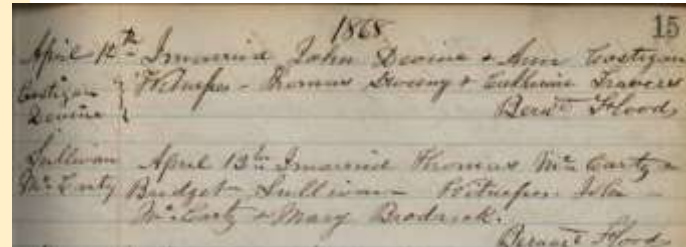 1868 15
April 12th I married John Devine & Ann Costigan
Costigan Witnesses - Thomas Sweeny & Catherine Travers
Devine Bernd Flood
Sullivan April 13th I married Thomas McCarty &
McCarty Bridget Sullivan - Witnesses John
McCarty & Mary Brodrick.
Bernard Flood